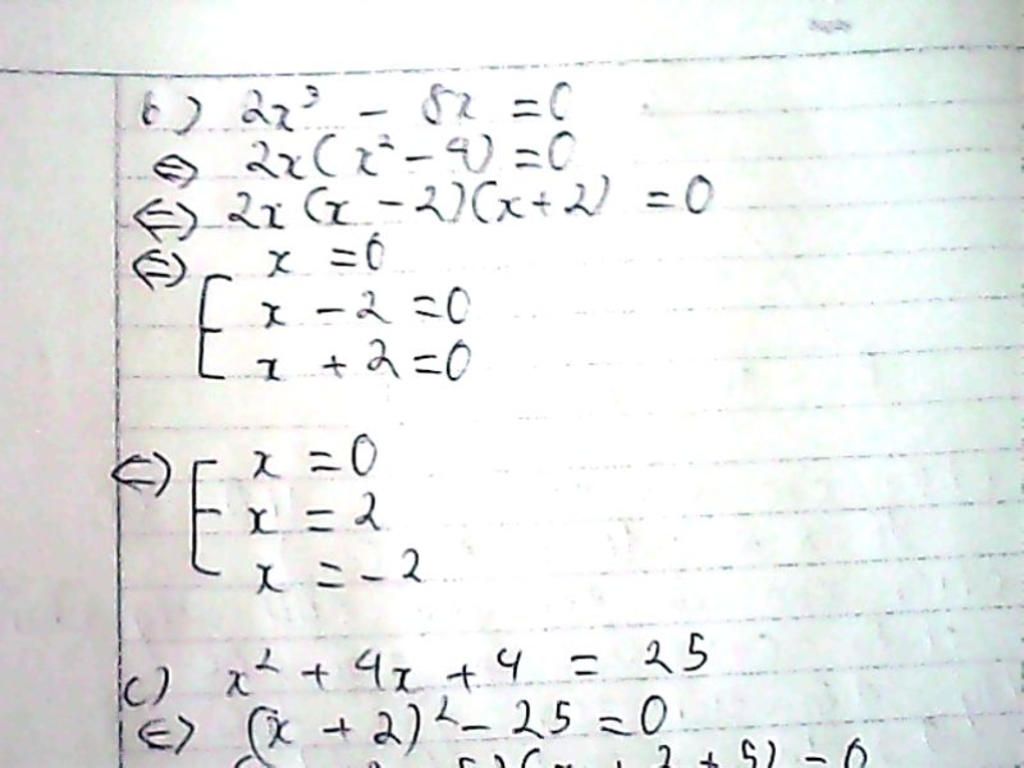 b) 2x³ - 8x = 0
⇔ 2x(x² - 4) = 0
⇔ 2x(x - 2)(x + 2) = 0
⇔ x = 0
[ x - 2 = 0
x + 2 = 0
⇔ [ x = 0
x = 2
x = -2
c) x² + 4x + 4 = 25
⇔ (x + 2)² - 25 = 0
5)(x + 2 + 5) = 0